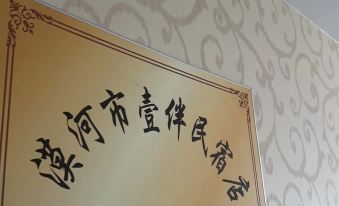 漠河市壹伴民宿店